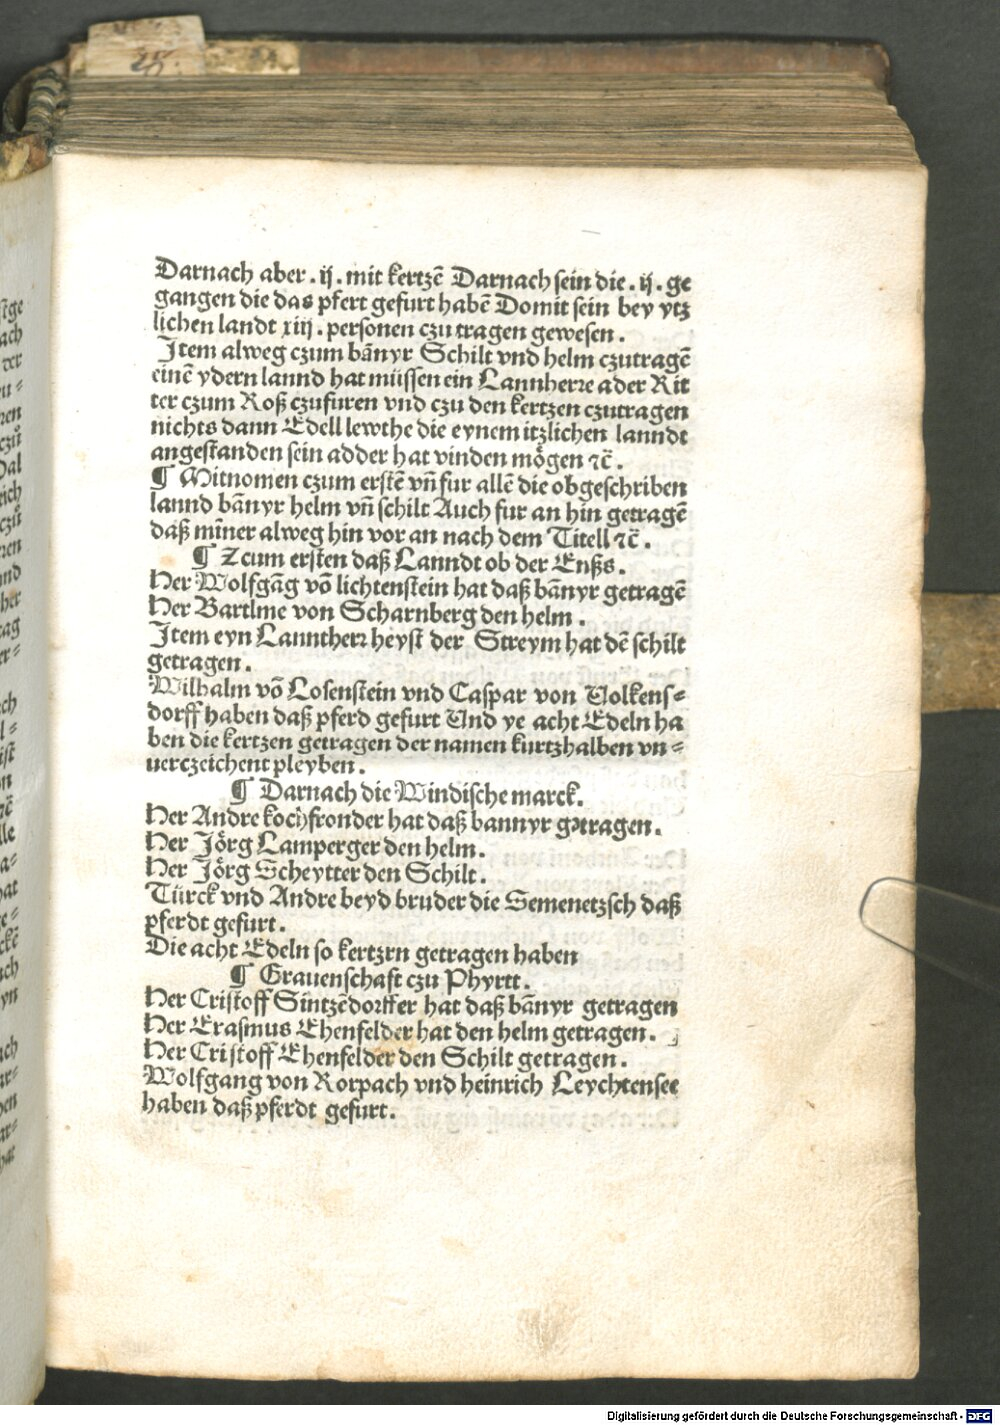 Darnach aber . ij . mit kertzē Darnach sein die . ij . ge
gangen die das pfert gefurt habē Domit sein bey ytz
lichen landt xiij . personen czu tragen gewesen .
Item alweg czum bānyr Schilt vnd helm czutragē
einē ydern lannd hat müssen ein Lannherre ader Rit
ter czum Roß czufuren vnd czu den kertzen czutragen
nichts dann Edell lewthe die eynem itzlichen lanndt
angestanden sein adder hat vinden mögen ⁊c̄ .
¶ Mitnomen czum erstē vn̄ fur allē die obgeschriben
lannd bānyr helm vn̄ schilt Auch fur an hin getragē
daß mīner alweg hin vor an nach dem Titell ⁊c̄ .
¶ Zcum ersten daß Lanndt ob der Enßs .
Her Wolfgāg vō lichtenstein hat daß bānyr getragē
Her Bartlme von Scharnberg den helm .
Item eyn Lanntherr heyst der Streym hat dē schilt
getragen .
Wilhalm vō Losenstein vnd Caspar von Volkens-
dorff haben daß pferd gefurt Vnd ye acht Edeln ha
ben die kertzen getragen der namen kurtzhalben vn-
uerczeichent pleyben .
¶ Darnach die Windische marck.
Her Andre kochfronder hat daß bannyr getragen .
Her Jörg Lamperger den helm .
Her Jörg Scheytter den Schilt .
Türck vnd Andre beyd bruder die Semenetzsch daß
pferdt gefurt .
Die acht Edeln so kertzrn getragen haben
¶ Grauenschaft czu Phyrtt .
Her Cristoff Sintzēdorffer hat daß bānyr getragen
Her Erasmus Ehenfelder hat den helm getragen .
Her Cristoff Ehenfelder den Schilt getragen .
Wolfgang von Rorpach vnd heinrich Leychtensee
haben daß pferdt gefurt .
Digitalisierung gefördert durch die Deutsche Forschungsgemeinschaft - DFG